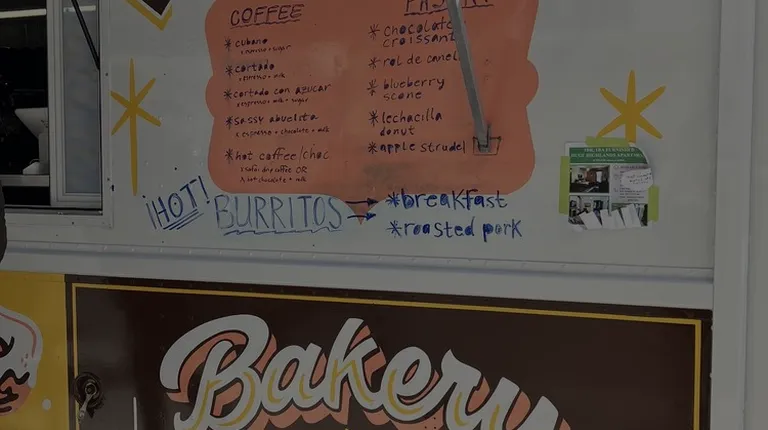 COFFEE
* cubano
x espresso + sugar
* cortado
x espresso + milk
* cortado con azucar
x espresso + milk + sugar
* sassy abuelita
x espresso + chocolate + milk
* hot coffee/choc
coffee OR
x hot chocolate + milk
PASTRY
* chocolate
croissant
* rol de canela
* blueberry
scone
* lechacilla
donut
* apple strudel
¡HOT! BURRITOS
* breakfast
* roasted pork
Bakery